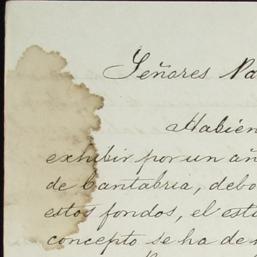 Señores
Habien
exhibir por un añ
de Cantabria, debo
estos fondos, el est
concepto se ha de